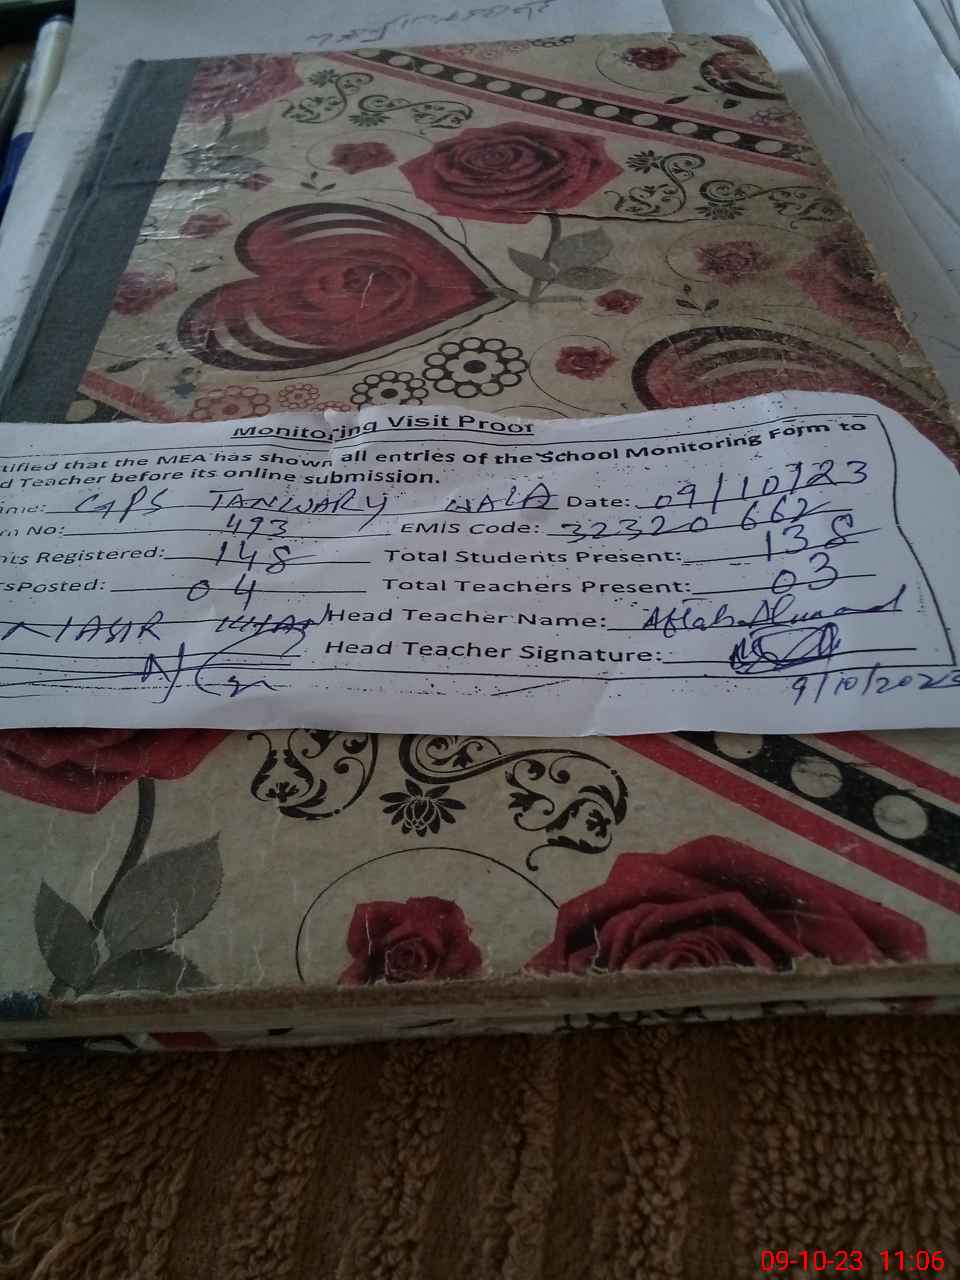 Monitoring Visit Proof
tified that the MEA has shown all entries of the School Monitoring Form to
d Teacher before its online submission.
GPS TANWARY WALA Date: 09/10/23
n No: 493 EMIS Code: 32320662
nts Registered: 148 Total Students Present: 138
sPosted: 04 Total Teachers Present: 03
NASIR Head Teacher Name: Aftab Ahmad
Head Teacher Signature:
9/10/2023
09-10-23 11:06